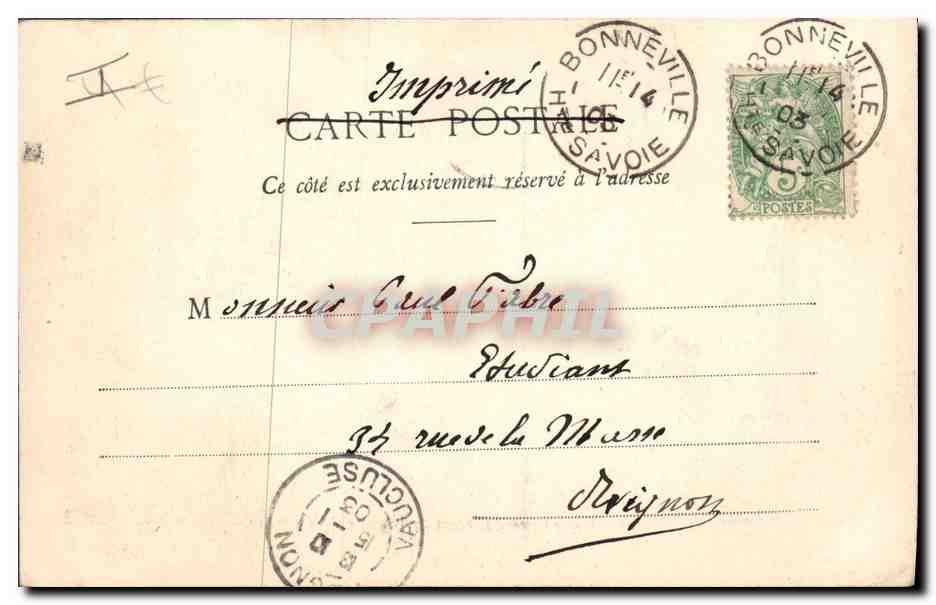 Imprimé
CARTE POSTALE
Ce côté est exclusivement réservé à l'adresse
BONNEVILLE
11E 14
03
HTE SAVOIE
BONNEVILLE
11E 14
03
HTE SAVOIE
5
POSTES
Monsieur Paul Fabre
CPAPHIL
Etudiant
34 rue de la Masse
Avignon
VAUCLUSE
03